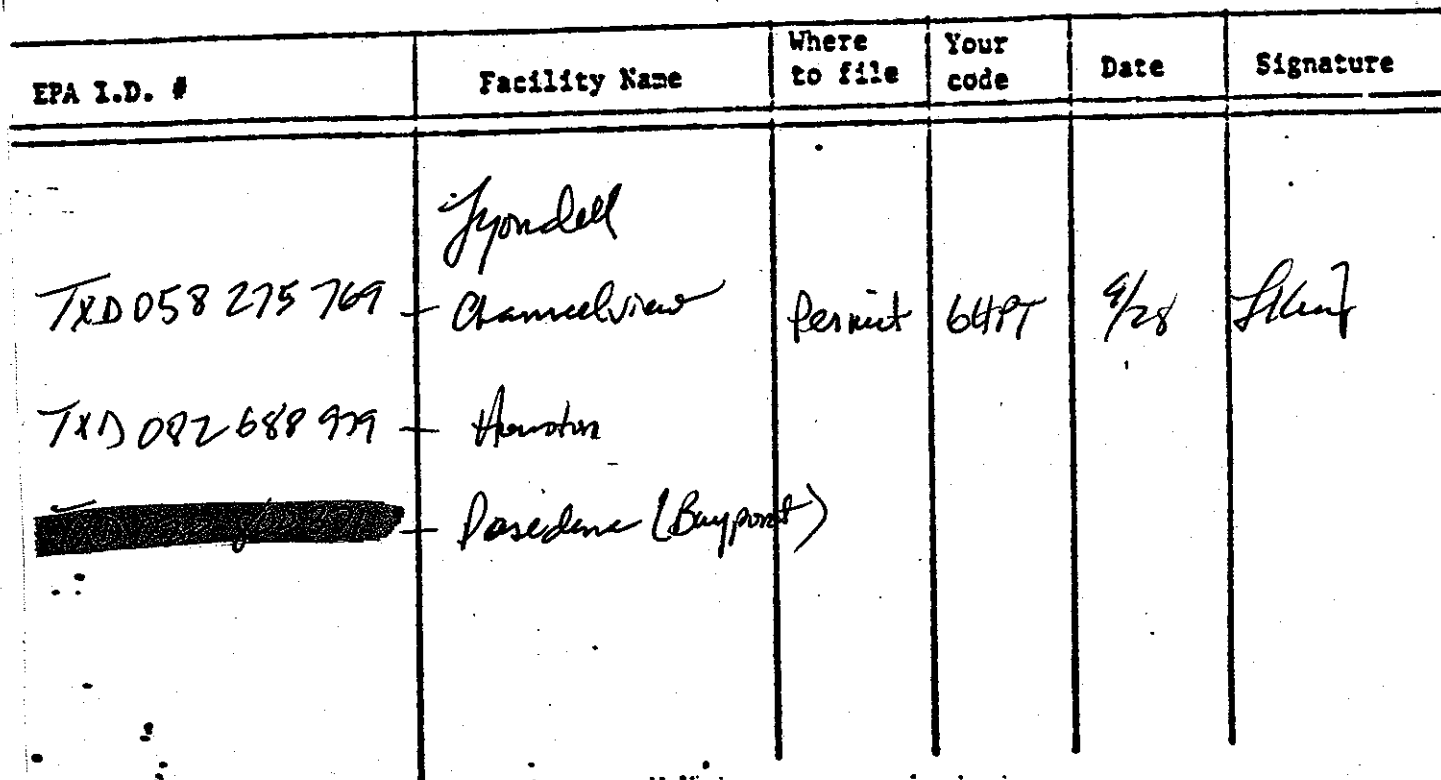 EPA I.D. # Facility Name Where to file Your code Date Signature
Lyondell
TXD 058 275 769 - Channelview Permit 6HPT 9/28
TXD 082 688 979 - Houston
- Pasadena (Bayport)